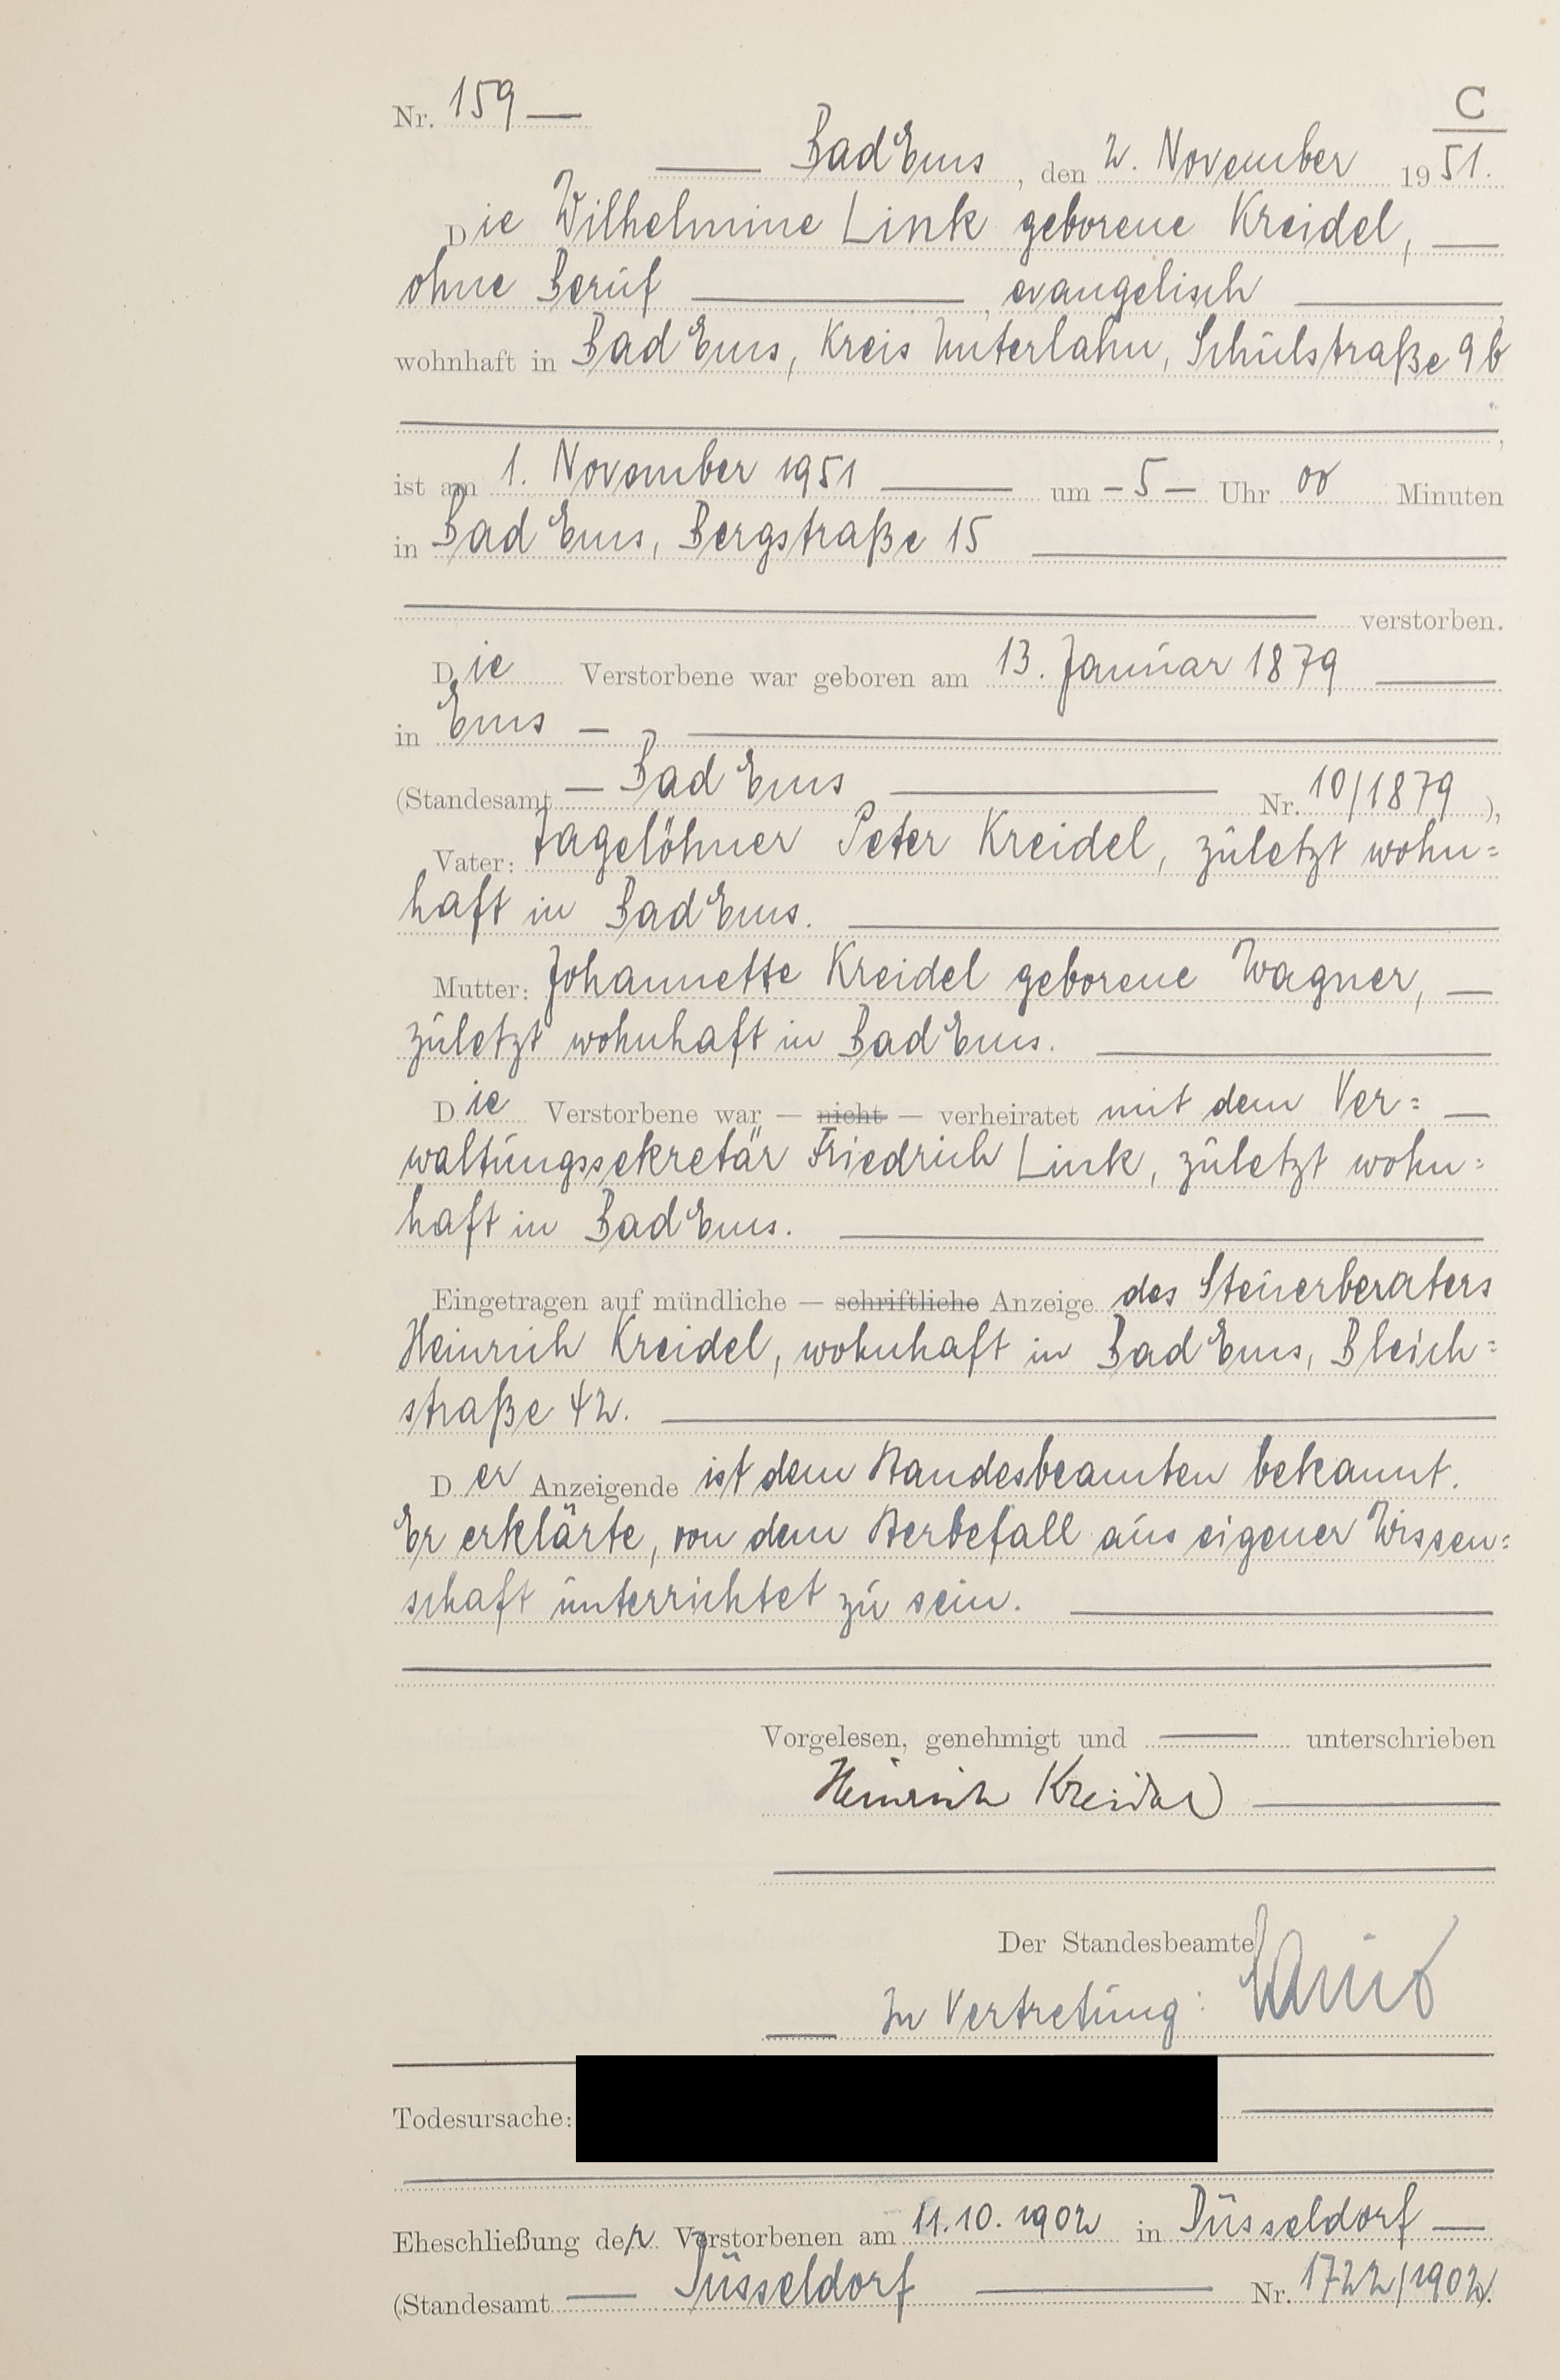 Nr. 159 —
C
Bad Ems, den 2. November 1951.
Die Wilhelmine Link geborene Kreidel,
ohne Beruf, evangelisch
wohnhaft in Bad Ems, Kreis Unterlahn, Schulstraße 9b
ist am 1. November 1951 um – 5 – Uhr 00 Minuten
in Bad Ems, Bergstraße 15
verstorben.
Die Verstorbene war geboren am 13. Januar 1879
in Ems —
(Standesamt — Bad Ems Nr. 10/1879),
Vater: Tagelöhner Peter Kreidel, zuletzt wohn=
haft in Bad Ems.
Mutter: Johannette Kreidel geborene Wagner,
zuletzt wohnhaft in Bad Ems.
Die Verstorbene war — nicht — verheiratet mit dem Ver=
waltungssekretär Friedrich Link, zuletzt wohn=
haft in Bad Ems.
Eingetragen auf mündliche — schriftliche Anzeige des Steuerberaters
Heinrich Kreidel, wohnhaft in Bad Ems, Bleich=
straße 42.
Der Anzeigende ist dem Standesbeamten bekannt.
Er erklärte, von dem Sterbefall aus eigener Wissen=
schaft unterrichtet zu sein.
Vorgelesen, genehmigt und — unterschrieben
Heinrich Kreidel
Der Standesbeamte
In Vertretung:
Todesursache:
Eheschließung der Verstorbenen am 11.10.1902 in Düsseldorf —
(Standesamt — Düsseldorf — Nr. 1722/1902).